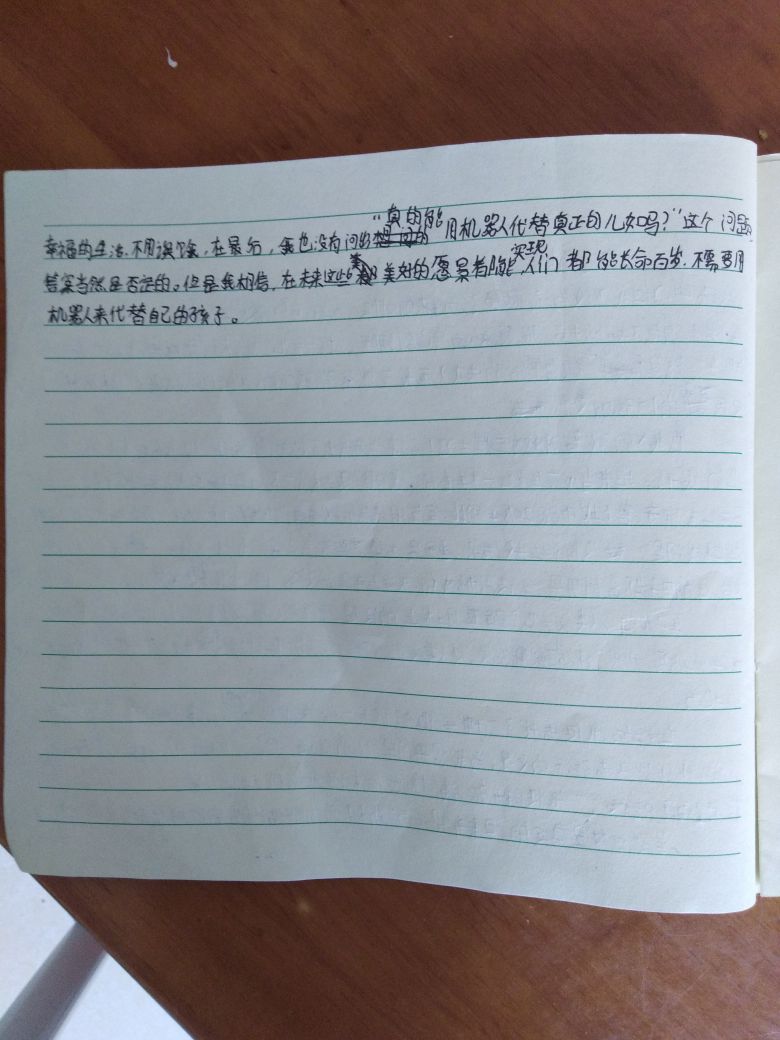 幸福的生活,不用误饭,在最后,我也没有问的“真的能用机器人代替真正的儿女吗?”这个问题
答案当然是否定的。但是我相信,在未来这些美好的愿景都能实现,人们都能长命百岁.不需要用
机器人来代替自己的孩子。